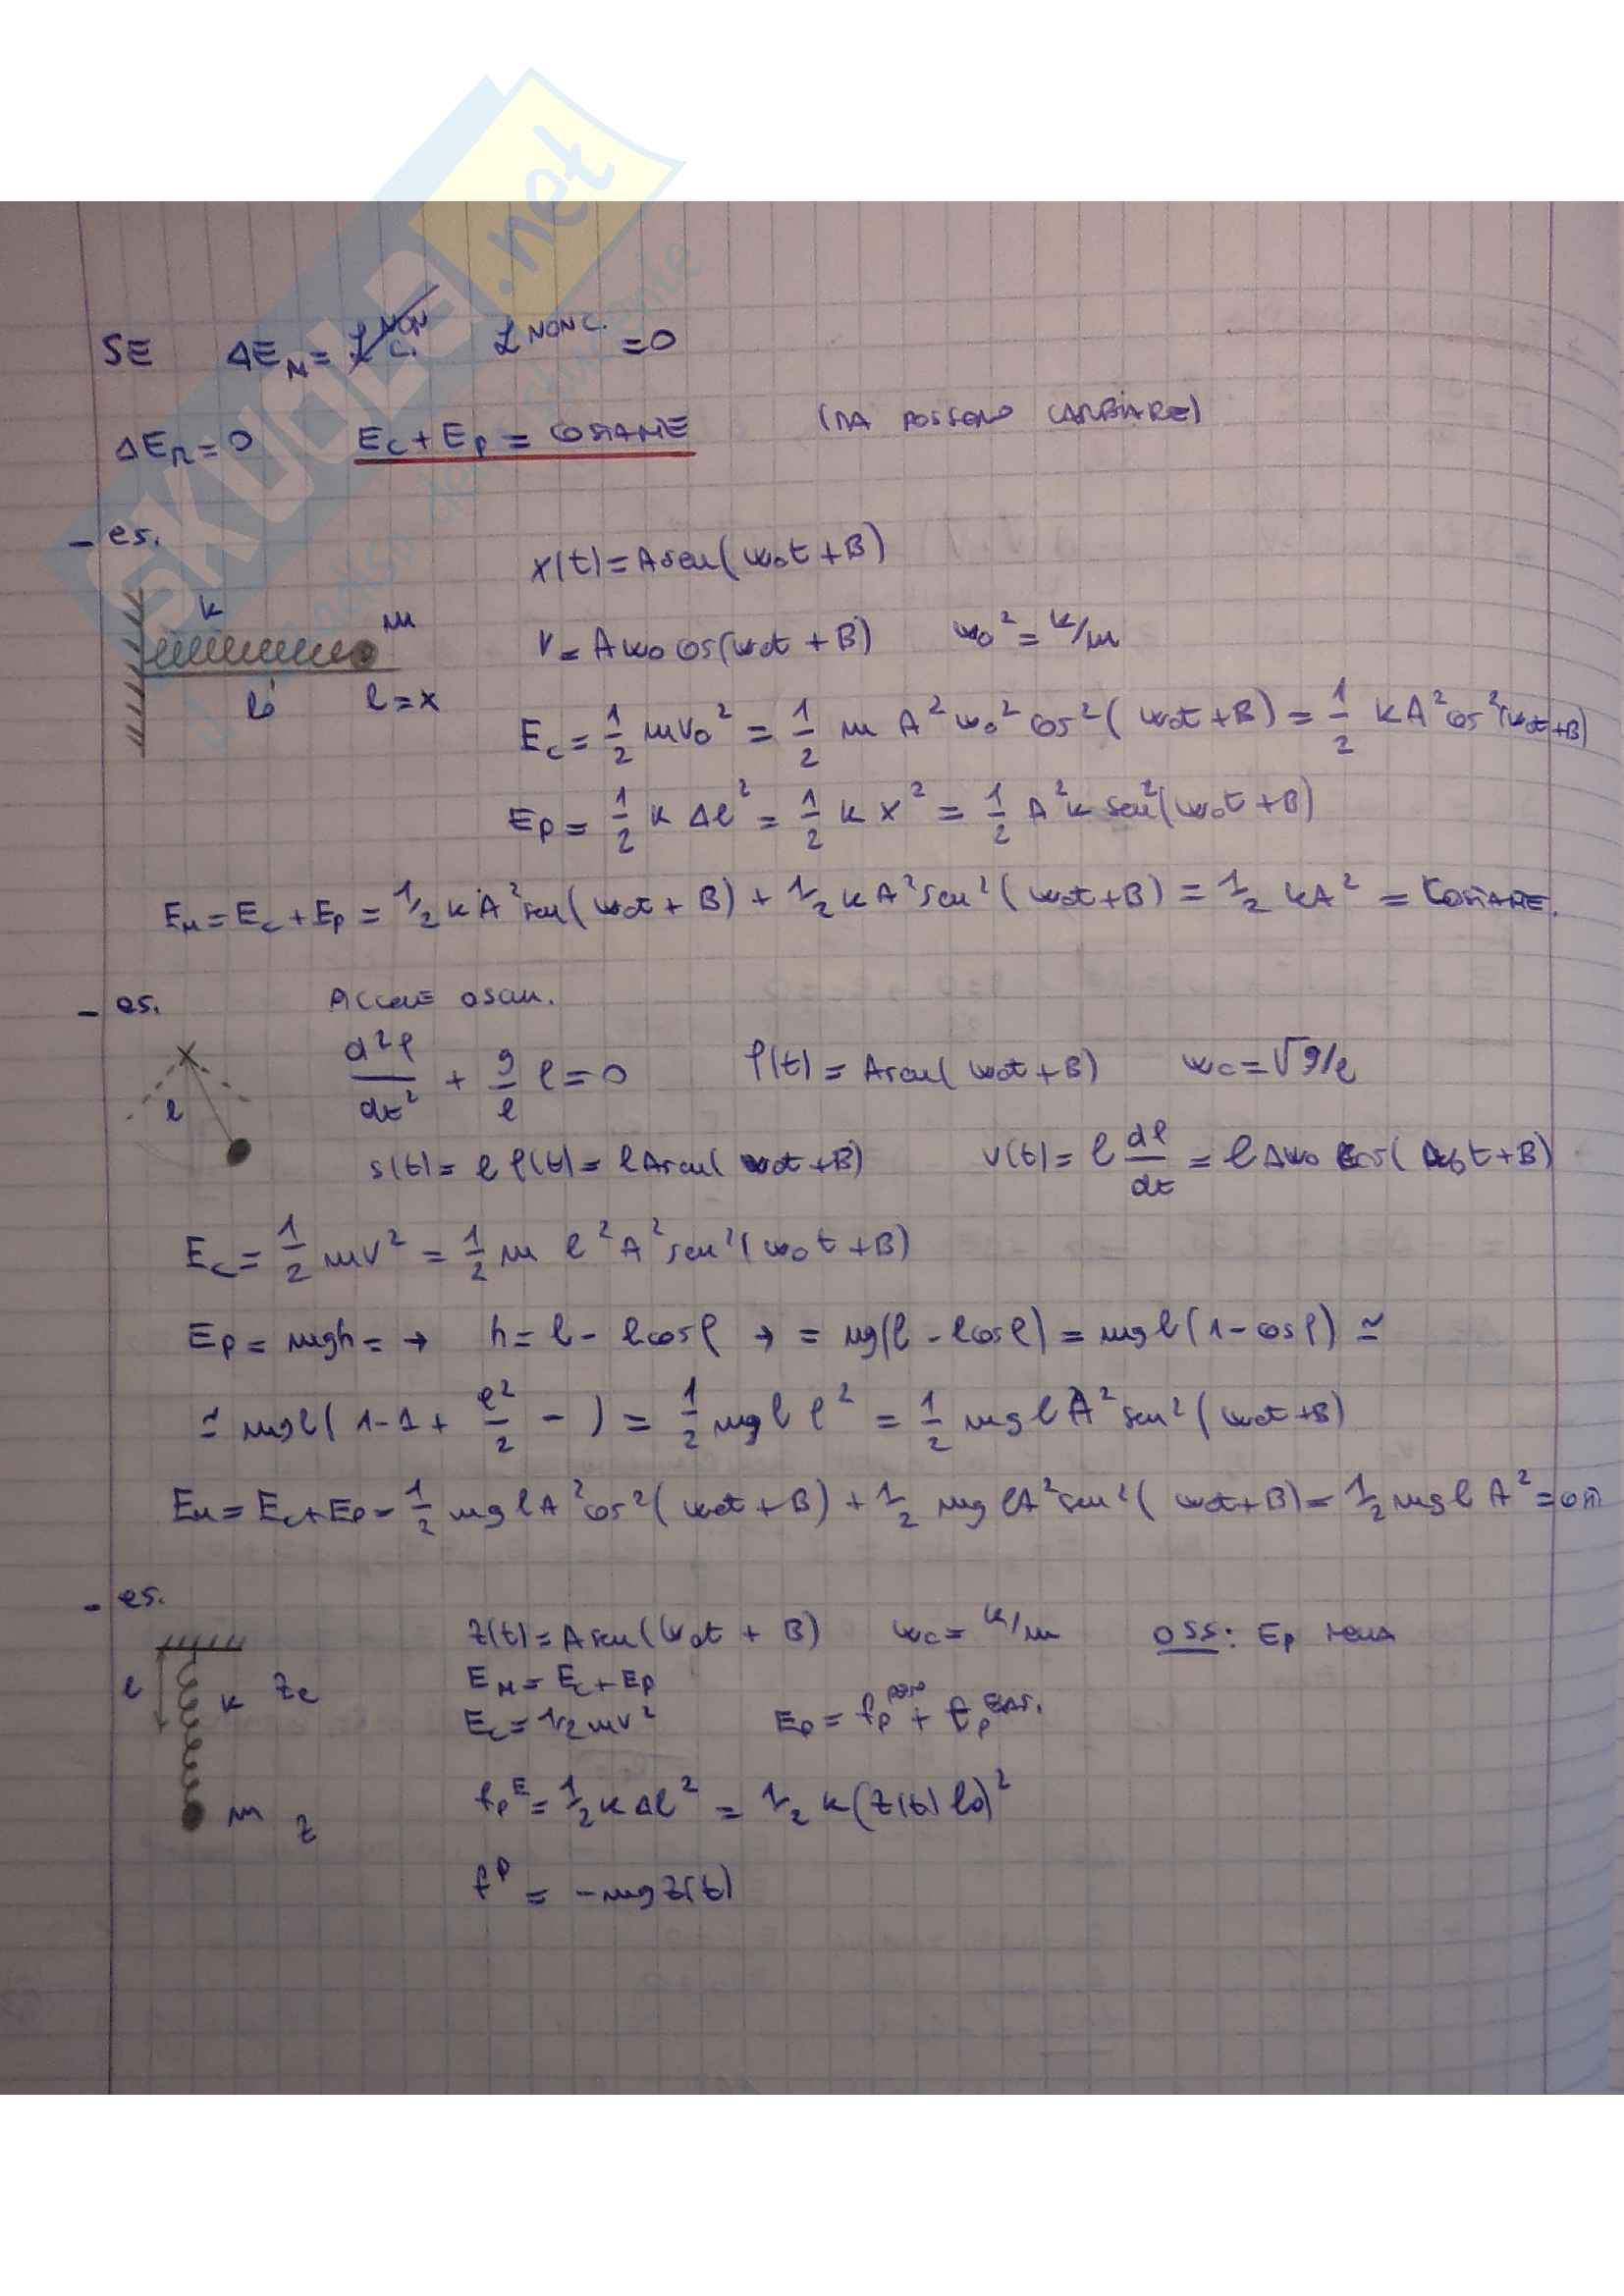 SKUOLA.net
SE ΔE_M = L^{NON C.} L^{NON C.} = 0
ΔE_M = 0 E_c + E_p = COSTANTE (MA POSSONO CAMBIARE)
- es.
x(t) = A sen(ω₀t + B)
k m
v = Aω₀ cos(ω₀t + B) ω₀² = k/m
l₀ l = x
E_c = 1/2 mv₀² = 1/2 m A² ω₀² cos²(ω₀t + B) = 1/2 kA² cos²(ω₀t + B)
E_p = 1/2 k Δl² = 1/2 k x² = 1/2 A² k sen²(ω₀t + B)
E_M = E_c + E_p = 1/2 kA² sen(ω₀t + B) + 1/2 kA² sen²(ω₀t + B) = 1/2 kA² = COSTANTE.
- es. PICCOLE OSCILL.
d²φ/dt² + g/l φ = 0 φ(t) = A sen(ω₀t + B) ω₀ = √g/l
l
s(t) = l φ(t) = l A sen(ω₀t + B) v(t) = l dφ/dt = l Aω₀ cos(ω₀t + B)
E_c = 1/2 mv² = 1/2 m l² A² sen²(ω₀t + B)
E_p = mgh = → h = l - l cosφ → = mg(l - l cosφ) = mgl(1 - cosφ) ≃
≃ mgl(1 - 1 + φ²/2 - ) = 1/2 mgl φ² = 1/2 mgl A² sen²(ω₀t + B)
E_M = E_c + E_p = 1/2 mglA² cos²(ω₀t + B) + 1/2 mglA² sen²(ω₀t + B) = 1/2 mgl A² = cost
- es.
z(t) = A sen(ω₀t + B) ω₀ = k/m OSS: E_p
E_M = E_c + E_p
l k z_e
E_c = 1/2 mv² E_p = f_p^{peso} + f_p^{ELAST.}
f_p^E = 1/2 k Δl² = 1/2 k(z(t) l₀)²
m z
f^P = -mg z(t)